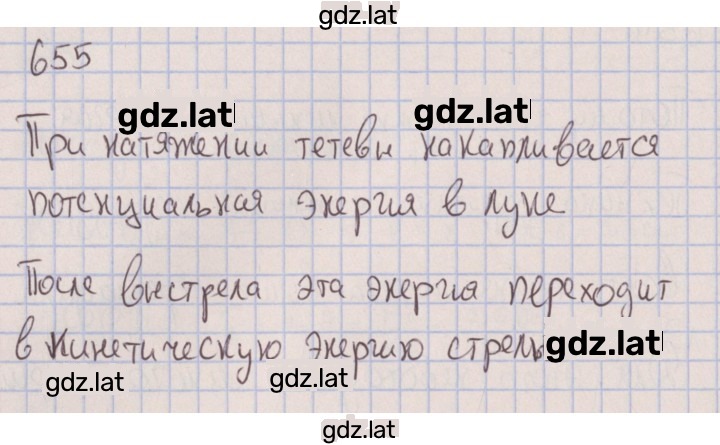 gdz.lat
655
gdz.lat gdz.lat
При натяжении тетевы накапливается
потенциальная энергия в луке
После выстрела эта энергия переходит
в кинетическую энергию стрелы gdz.lat
gdz.lat gdz.lat
gdz.lat